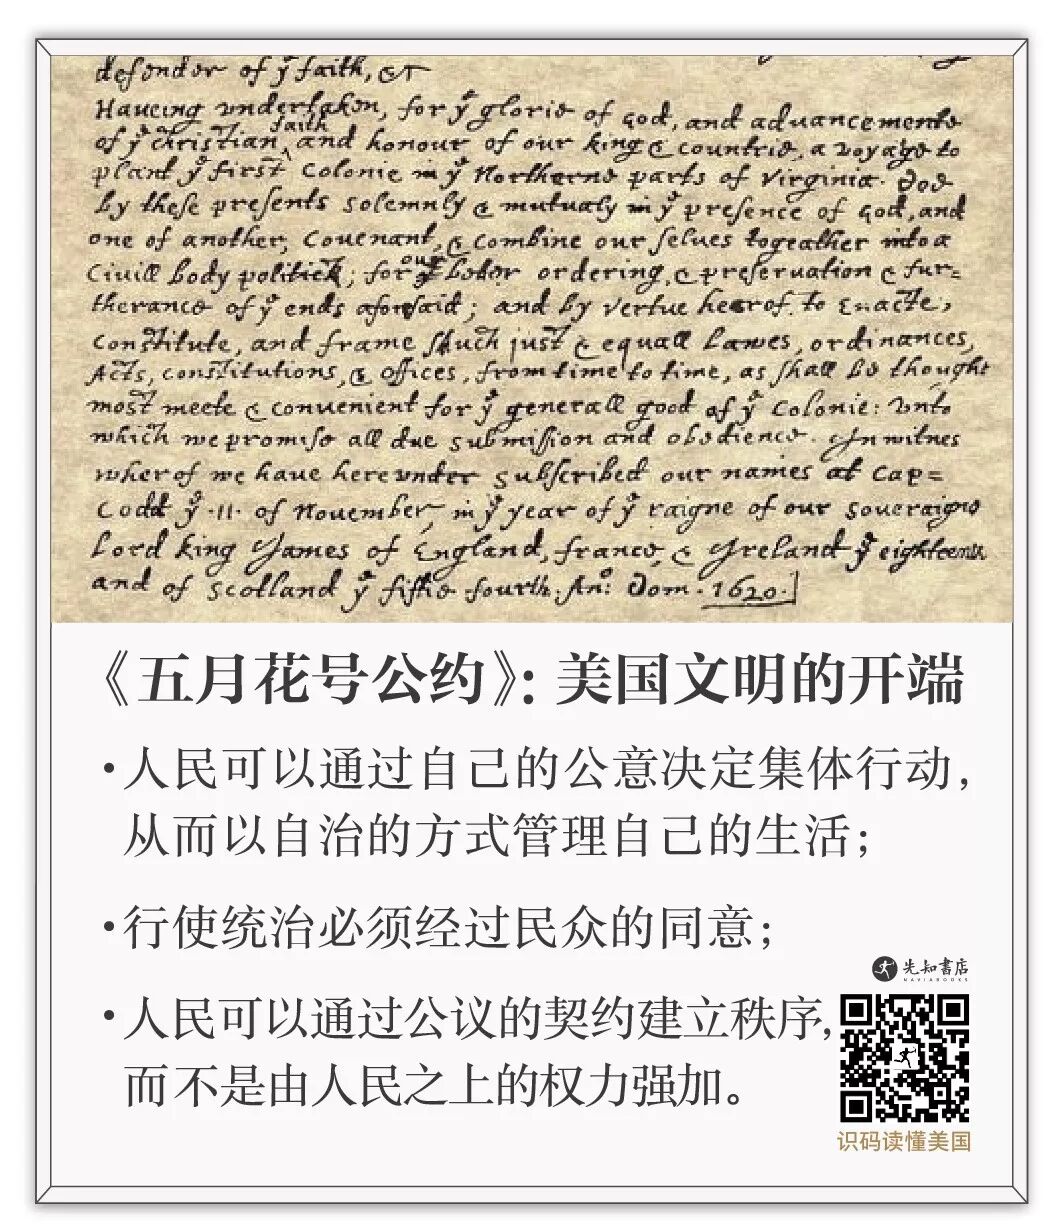 defendor of yͤ faith, &c
Haueing vndertaken, for yͤ glorie of God, and aduancemente
of yͤ christian faith and honour of our king & countrie, a voyage to
plant yͤ first colonie in yͤ Northerne parts of Virginia. Doe
by these presents solemnly & mutualy in yͤ presence of God, and
one of another, couenant, & combine our selues togeather into a
Ciuill body politick; for our better ordering, & preseruation & fur=
therance of yͤ ends aforesaid; and by vertue hearof to Enacte,
constitute, and frame shuch just & equall lawes, ordinances,
Acts, constitutions, & offices, from time to time, as shall be thought
most meete & conuenient for yͤ generall good of yͤ Colonie: vnto
which we promise all due submission and obedience. In witnes
wherof we haue herevnder subscribed our names at Cap=
Codd yͤ .11. of Nouember, in yͤ year of yͤ raigne of our soueraigne
Lord king James of England, france, & Ireland yͤ eighteenth
and of Scotland yͤ fiftie fourth. Anͦ: Dom. 1620.]
《五月花号公约》：美国文明的开端
·人民可以通过自己的公意决定集体行动，
从而以自治的方式管理自己的生活；
·行使统治必须经过民众的同意；
先知書店
NAVIABOOKS
·人民可以通过公议的契约建立秩序，
而不是由人民之上的权力强加。
识码读懂美国